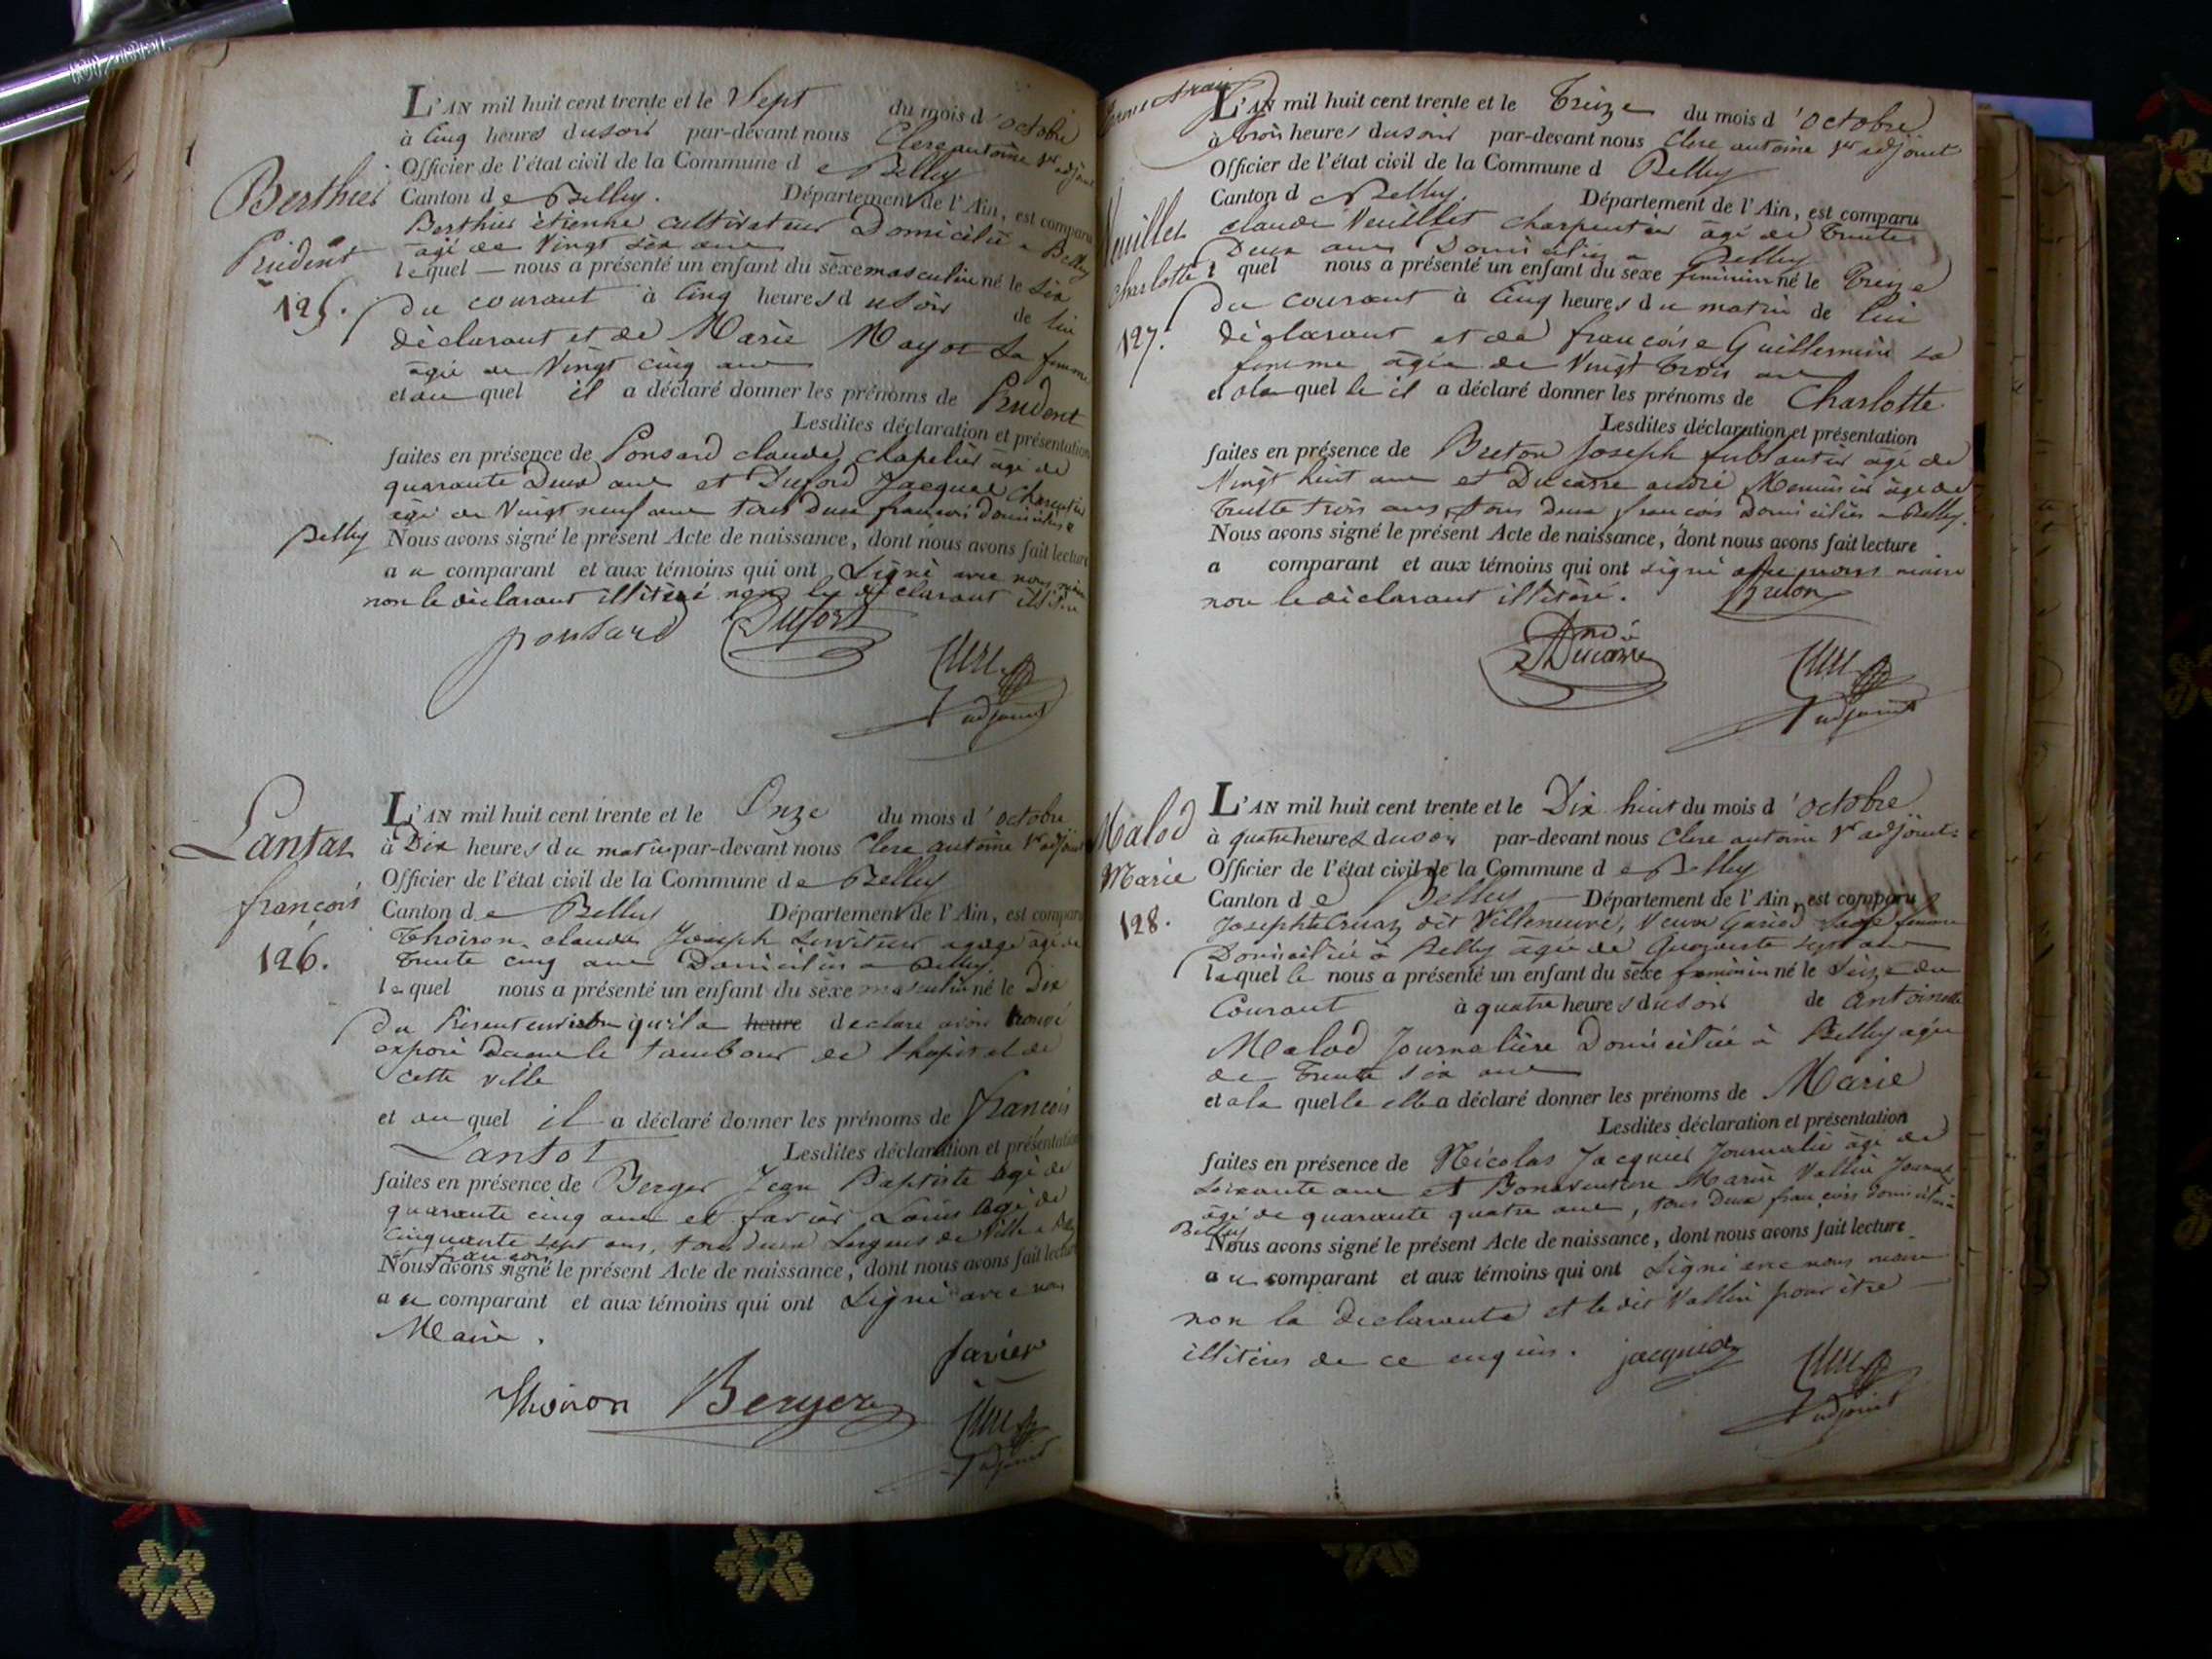 L'AN mil huit cent trente et le Sept du mois d'octobre
à Cinq heures du soir par-devant nous Clerc antoine 1er adjoint
Officier de l'état civil de la Commune de Belley
Berthier
Canton de Belley. Département de l'Ain, est comparu
Berthier étienne cultivateur Domicilié a Belley
Prudent
âgé de Vingt six ans
lequel nous a présenté un enfant du sexe masculin né le six
125.
du courant à Cinq heures du soir de lui
déclarant et de Marie Mayot sa femme
agée de Vingt cinq ans
et au quel il a déclaré donner les prénoms de Prudent
Lesdites déclaration et présentation
faites en présence de Ponsard claude, chapelier âgé de
quarante Deux ans et Duford Jacques charpentier
âgé de Vingt neuf ans tous deux françois domiciliés a
Belley Nous avons signé le présent Acte de naissance, dont nous avons fait lecture
au comparant et aux témoins qui ont signé avec nous
non le déclarant illitéré non le déclarant
ponsard Dufort
Clerc
adjoint
Lantaz
françois
126.
L'AN mil huit cent trente et le Onze du mois d'octobre
à Dix heures du matin par-devant nous Clerc antoine 1er adjoint
Officier de l'état civil de la Commune de Belley
Canton de Belley Département de l'Ain, est comparu
Thoiron claude Joseph serviteur âgé de
trente cinq ans Domicilié a Belley
lequel nous a présenté un enfant du sexe masculin né le Dix
du Présent environ qu'il a heure declaré avoir trouvé
exposé dans le tambour de l'hopital de
cette ville
et au quel il a déclaré donner les prénoms de françois
Lantot Lesdites déclaration et présentation
faites en présence de Berger Jean Baptiste agé de
quarante cinq ans et favier Louis Agé de
Cinquante sept ans, tous deux Sergens de Ville a Belley
et françois
Nous avons signé le présent Acte de naissance, dont nous avons fait lecture
au comparant et aux témoins qui ont signé avec nous
Maire.
favier
Thoiron Berger
Clerc
adjoint
L'AN mil huit cent trente et le Treize du mois d'octobre
à trois heures du soir par-devant nous Clerc antoine 1er adjoint
Officier de l'état civil de la Commune d Belley
Canton de Belley Département de l'Ain, est comparu
Veuillet
claude Veuillet charpentier âgé de Trente
Deux ans Domicilié a Belley
Charlotte
quel nous a présenté un enfant du sexe feminin né le Treize
127.
du courant à Cinq heures du matin de lui
déclarant et de françoise Guillermin sa
femme âgée de Vingt trois ans
et a la quelle il a déclaré donner les prénoms de Charlotte
Lesdites déclaration et présentation
faites en présence de Breton Joseph âgé de
Vingt huit ans et Ducarre andré Menuisier âgé de
trente trois ans, tous deux françois Domiciliés a Belley.
Nous avons signé le présent Acte de naissance, dont nous avons fait lecture
a comparant et aux témoins qui ont signé avec nous maire
non le déclarant illitéré. Breton
André
Ducarre
Clerc
adjoint
Malod
Marie
128.
L'AN mil huit cent trente et le Dix huit du mois d'octobre
à quatre heures du soir par-devant nous Clerc antoine 1er adjoint
Officier de l'état civil de la Commune de Belley
Canton de Belley Département de l'Ain, est comparu
Josephte dit Villeneuve, Veuve sage femme
Domiciliée à Belley âgée de Quarante sept ans
laquelle nous a présenté un enfant du sexe feminin né le seize du
Courant à quatre heures du soir de antoinette
Malod Journalière Domiciliée à Belley agée
de Trente six ans
et a la quelle elle a déclaré donner les prénoms de Marie
Lesdites déclaration et présentation
faites en présence de Nicolas Jacquier Journalier âgé de
soixante ans et Bonaventure Marin Vallin Journalier
âgé de quarante quatre ans, tous Deux françois domiciliés à
Belley
Nous avons signé le présent Acte de naissance, dont nous avons fait lecture
au comparant et aux témoins qui ont signé avec nous maire
non la declarante et le dit Vallin pour être
illitérés de ce enquis. jacquier
Clerc
adjoint